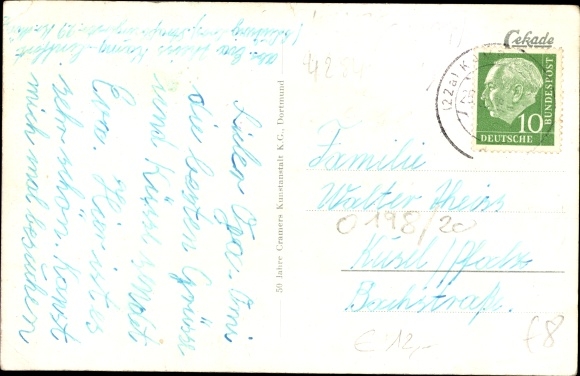 Cekade
Lieber Opa. Omi
die besten Grüsse
und Küsse sendet
Eva. Hier ist es
sehr schön. Kannst
mich mal besuchen
50 Jahre Cramers Kunstanstalt K.G., Dortmund
(22a) K
10
DEUTSCHE
BUNDESPOST
4284
Familie
Walter Theiss
0198/20
Kusel/Pfalz
Bachstraß.
€ 12,-
f8